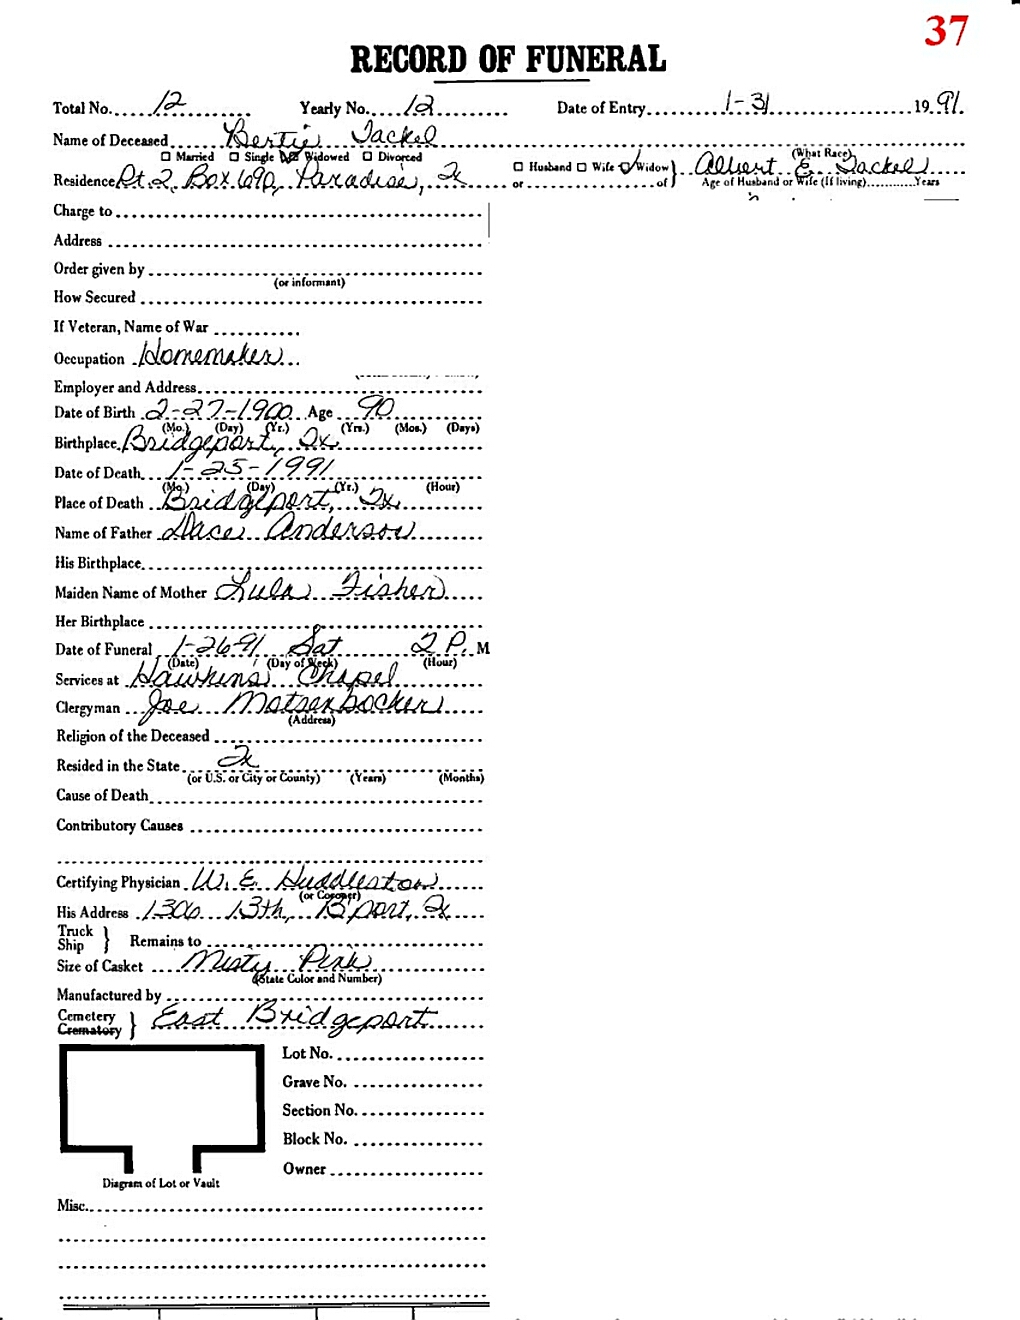 37
RECORD OF FUNERAL
Total No. 12 Yearly No. 12 Date of Entry 1-31 19 91
Name of Deceased Bertie Tackel (What Race)
☐ Married ☐ Single ☒ Widowed ☐ Divorced ☐ Husband ☐ Wife ☑ Widow } Albert E. Tackel
Residence Rt. 2, Box 690, Paradise, Tx or of } Age of Husband or Wife (If living) Years
Charge to
Address
Order given by
(or informant)
How Secured
If Veteran, Name of War
Occupation Homemaker
Employer and Address
Date of Birth 2-27-1900 Age 90
(Mo.) (Day) (Yr.) (Yrs.) (Mos.) (Days)
Birthplace Bridgeport, Tx
Date of Death 1-25-1991
(Mo.) (Day) (Yr.) (Hour)
Place of Death Bridgeport, Tx
Name of Father Dace Anderson
His Birthplace
Maiden Name of Mother Lula Fisher
Her Birthplace
Date of Funeral 1-26-91 Sat 2 P. M
(Date) (Day of Week) (Hour)
Services at Hawkins Chapel
Clergyman Joe Matsenbocker
(Address)
Religion of the Deceased
Resided in the State Tx
(or U.S. or City or County) (Years) (Months)
Cause of Death
Contributory Causes
Certifying Physician W. E. Huddleston
(or Coroner)
His Address 1306 13th, B'port, Tx
Truck
Ship } Remains to
Size of Casket Misty Pink
(State Color and Number)
Manufactured by
Cemetery
Crematory } East Bridgeport
Lot No.
Grave No.
Section No.
Block No.
Owner
Diagram of Lot or Vault
Misc.